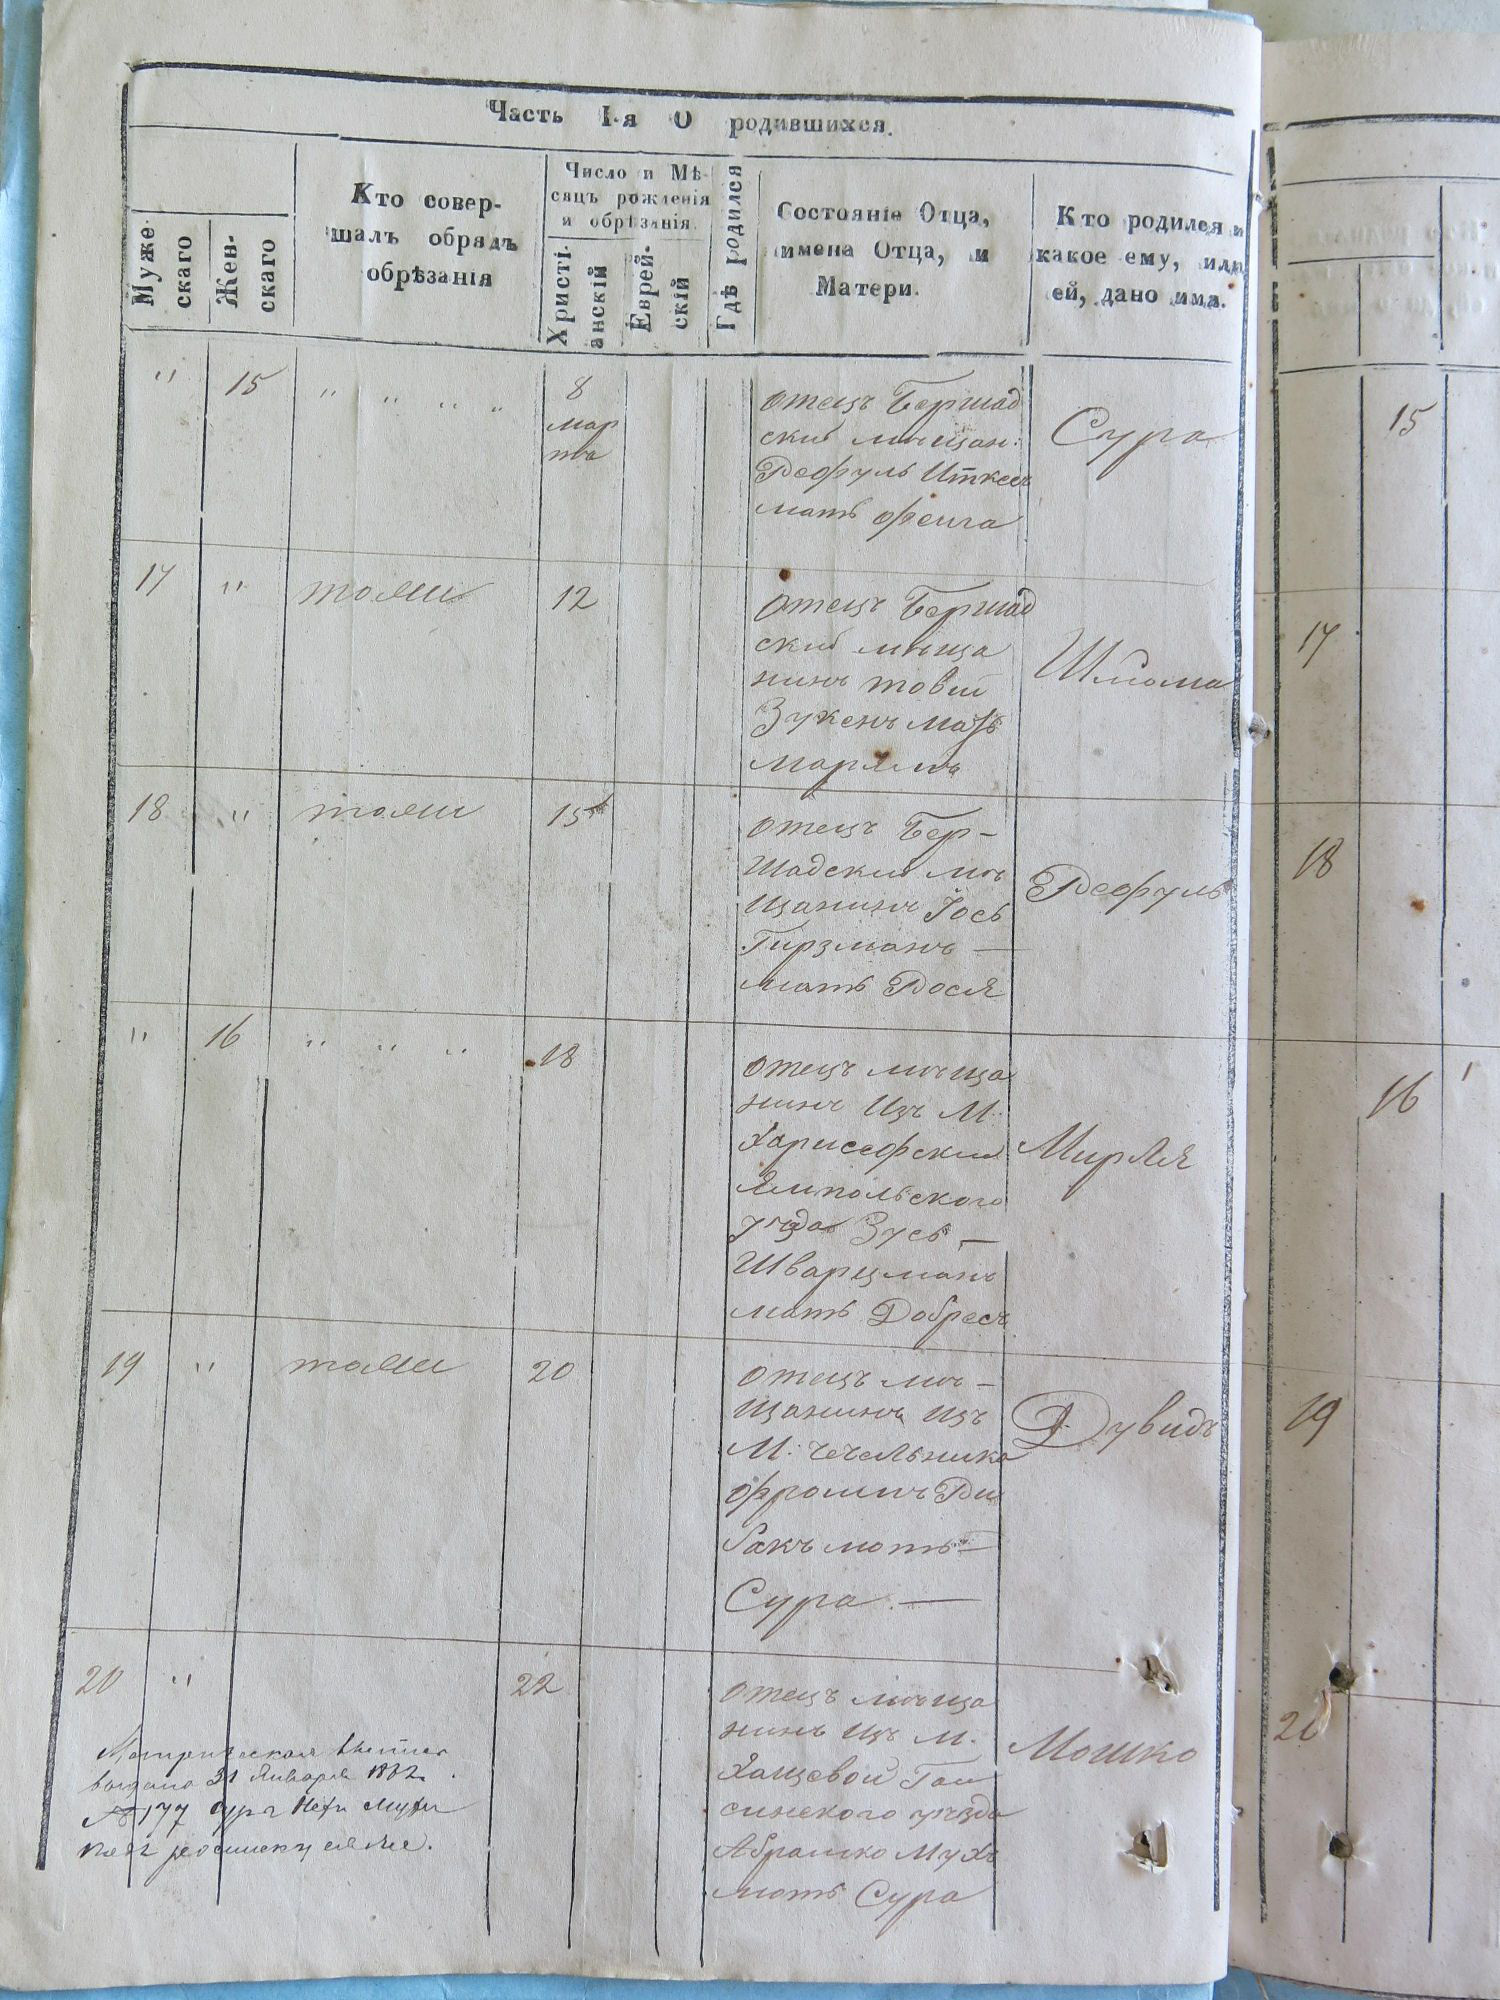 Часть I-я О родившихся.
Муже-
скаго
Жен-
скаго
Кто совер-
шалъ обрядъ
обрѣзанія
Число и Мѣ-
сяцъ рожденія
и обрѣзанія.
Христі-
анскій
Еврей-
скій
Гдѣ родился
Состояніе Отца,
имена Отца, и
Матери.
Кто родился и
какое ему, или
ей, дано имя.
" 15 " " " " 8
мар
та
отецъ Бершад
скій мещан:
Рефуль Иткесъ
мать Фейга
Сура
17 " тами 12
отецъ Бершад
скій мѣща
нинъ товій
Зукенъ мать
маріямъ
Шлома
18 " тами 15
отецъ Бер-
шадскій мѣ
щанинъ Іось
Гирзманъ —
мать Рося
Рефуль
" 16 " " " 18
отецъ мѣща
нинъ изъ М.
Ямпольского
уѣзда Зусь —
Шварцманъ
мать Добресъ
Мирля
19 " тами 20
отецъ мѣ-
щанинъ изъ
М: чечельника
Фроимъ Ри
бакъ мать —
Сура. —
Дувидъ
20 " 22
отецъ мѣща
нинъ изъ М.
Хащевой Гай
синского уѣзда
Абрамко Мухъ
мать Сура
Мошко
Метрическая
выдана 31 Января 1882
№ 177
15
17
18
16
19
20